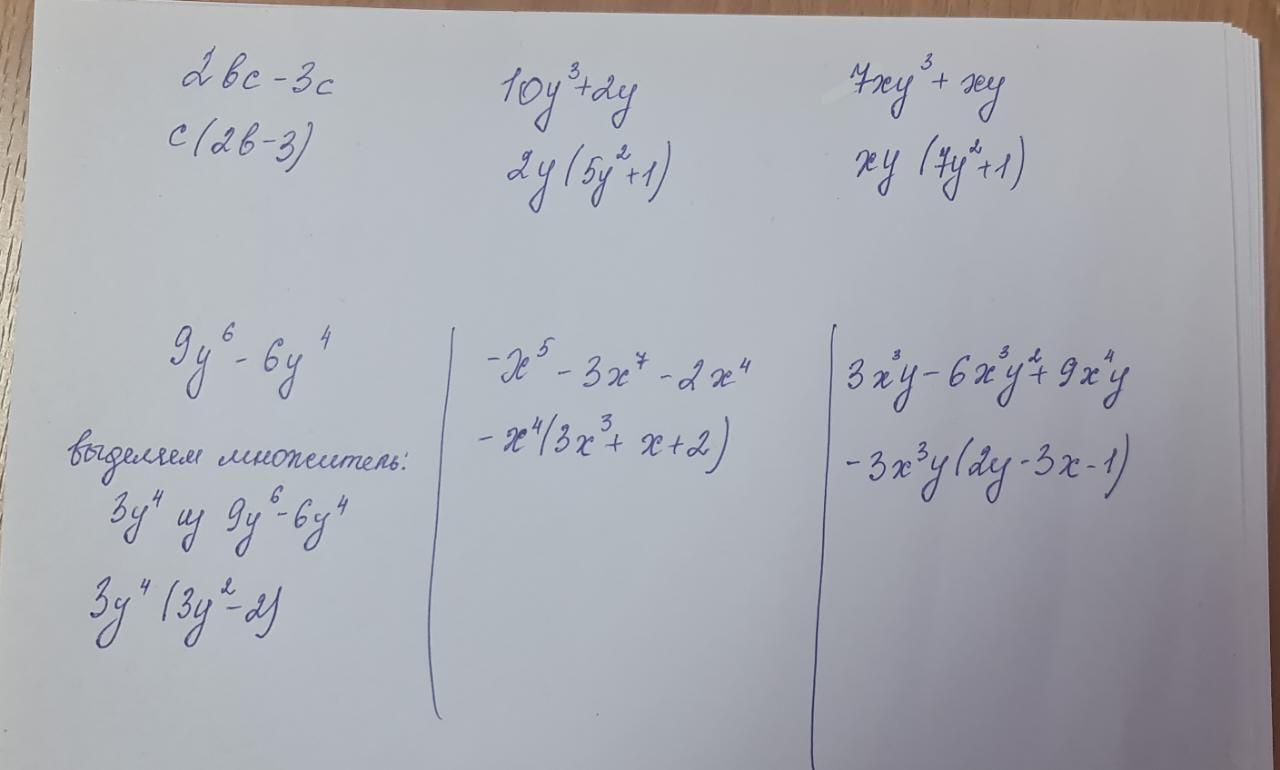 2bc - 3c
c(2b - 3)
10y³ + 2y
2y(5y² + 1)
7xy³ + xy
xy (7y² + 1)
9y⁶ - 6y⁴
выделяем множитель:
3y⁴ из 9y⁶ - 6y⁴
3y⁴ (3y² - 2)
-x⁵ - 3x⁷ - 2x⁴
-x⁴(3x³ + x + 2)
3x³y - 6x³y² + 9x⁴y
-3x³y(2y - 3x - 1)